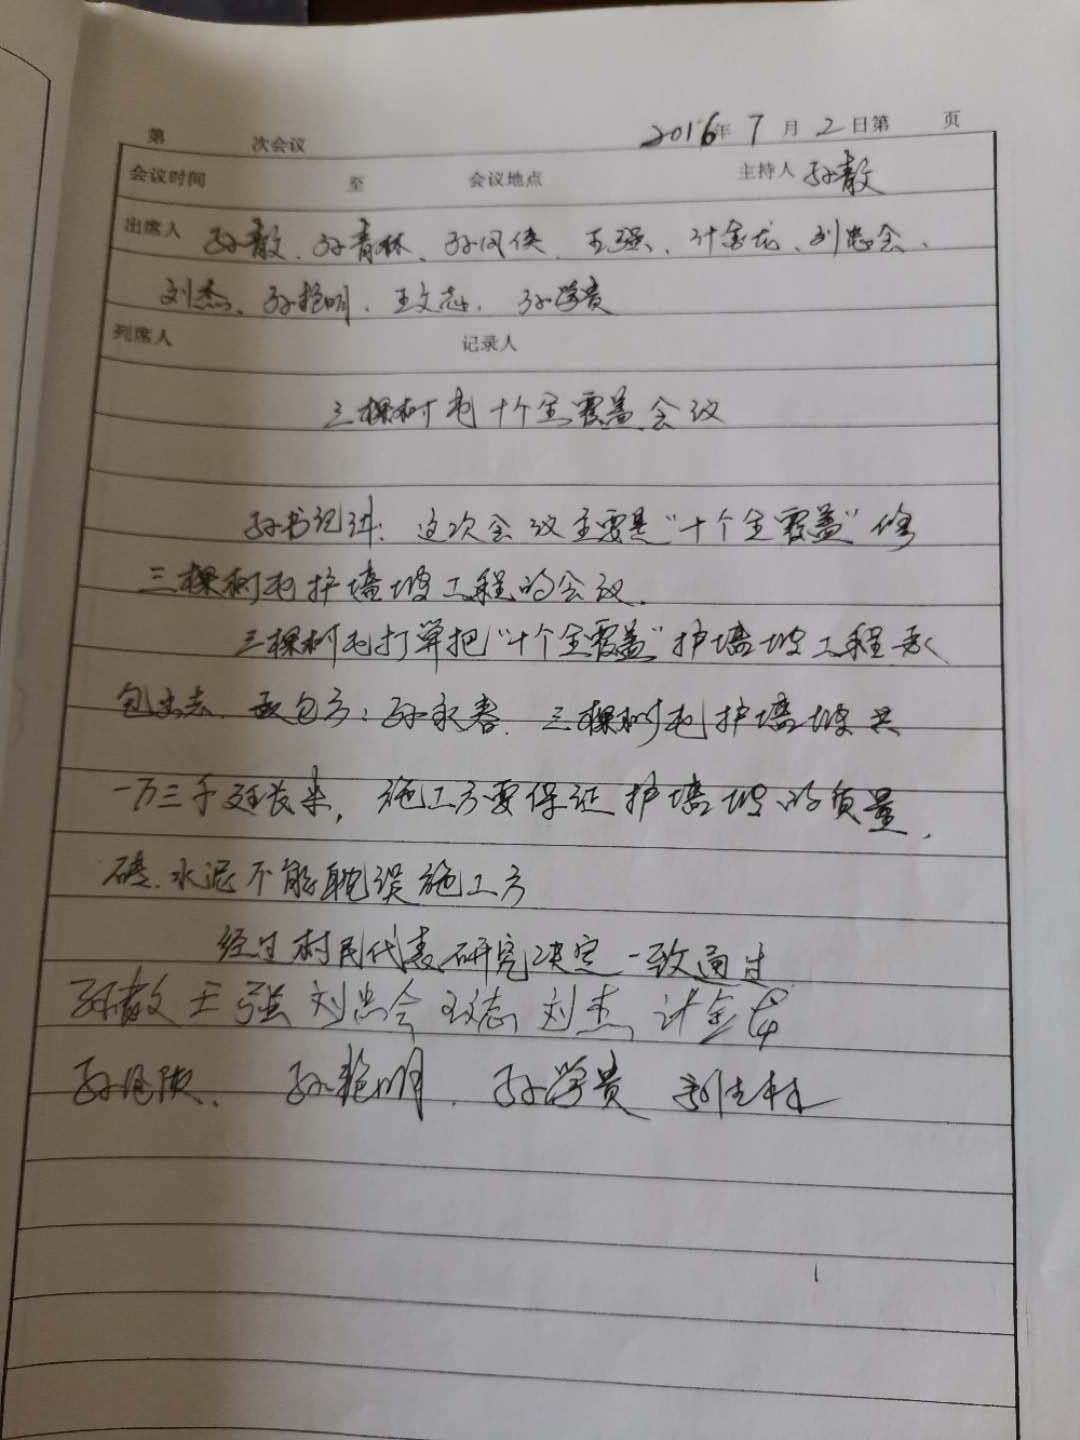 第 次会议 2016年7月2日第 页
会议时间 至 会议地点 主持人 孙散
出席人 孙散、孙青林、孙凤侠、王强、计金龙、刘忠会、
刘杰、孙艳明、王文志、孙学贵
列席人 记录人
三棵树屯十个全覆盖会议
孙书记讲：这次会议主要是“十个全覆盖”修
三棵树屯护墙坡工程的会议．
三棵树屯打算把“十个全覆盖”护墙坡工程承
包出去．承包方：孙永春．三棵树屯护墙坡共
一万三千延长米，施工方要保证护墙坡的质量．
砖、水泥不能耽误施工方
经过村民代表研究决定一致通过
孙散 王强 刘忠会 王文志 刘杰 计金龙
孙凤侠． 孙艳明． 孙学贵